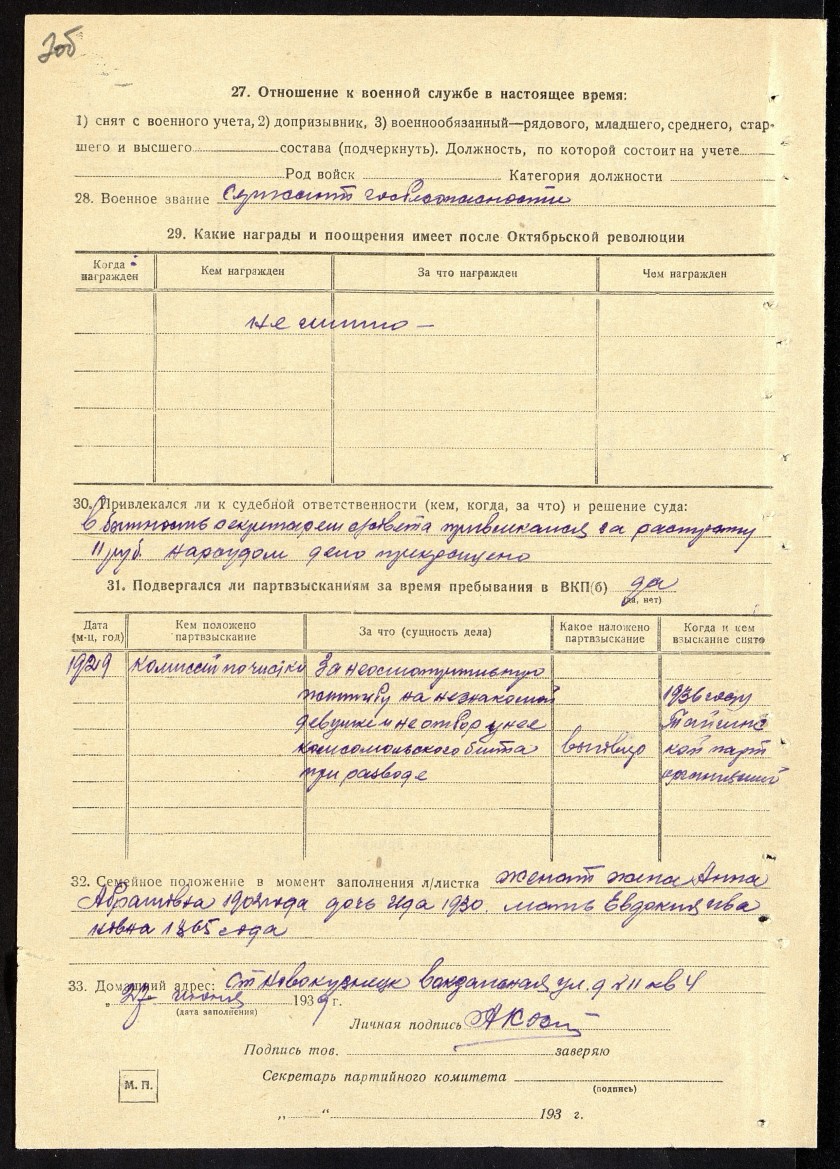 27. Отношение к военной службе в настоящее время:
1) снят с военного учета, 2) допризывник, 3) военнообязанный—рядового, младшего, среднего, стар-
шего и высшего состава (подчеркнуть). Должность, по которой состоит на учете
Род войск Категория должности
28. Военное звание Сержант госбезопасности
29. Какие награды и поощрения имеет после Октябрьской революции
Когда награжден Кем награжден За что награжден Чем награжден
не имею —
30. Привлекался ли к судебной ответственности (кем, когда, за что) и решение суда:
в бытность секретарем с/совета привлекался за растрату
11 руб. нарсудом дело прекращено
31. Подвергался ли партвзысканиям за время пребывания в ВКП(б) да
(да, нет)
Дата (м-ц, год) Кем положено партвзыскание За что (сущность дела) Какое наложено партвзыскание Когда и кем взыскание снято
1929 Комиссией по чистке За неосмотрительную
женитьбу на незнакомой 1936 году
девушке и Тайгинс
комсомольского быта выговор кой парт
при разводе организацией
32. Семейное положение в момент заполнения л/листка женат жена Анна
Абрамовна дочь Ида 1930. мать Евдокия Ива
новна 1865 года
33. Домашний адрес: ст Новокузнецк вокзальная ул. д 211 кв 4
„ 27 июня 1939 г.
(дата заполнения)
Личная подпись
Подпись тов. заверяю
Секретарь партийного комитета
(подпись)
М. П.
„ “ 193 г.